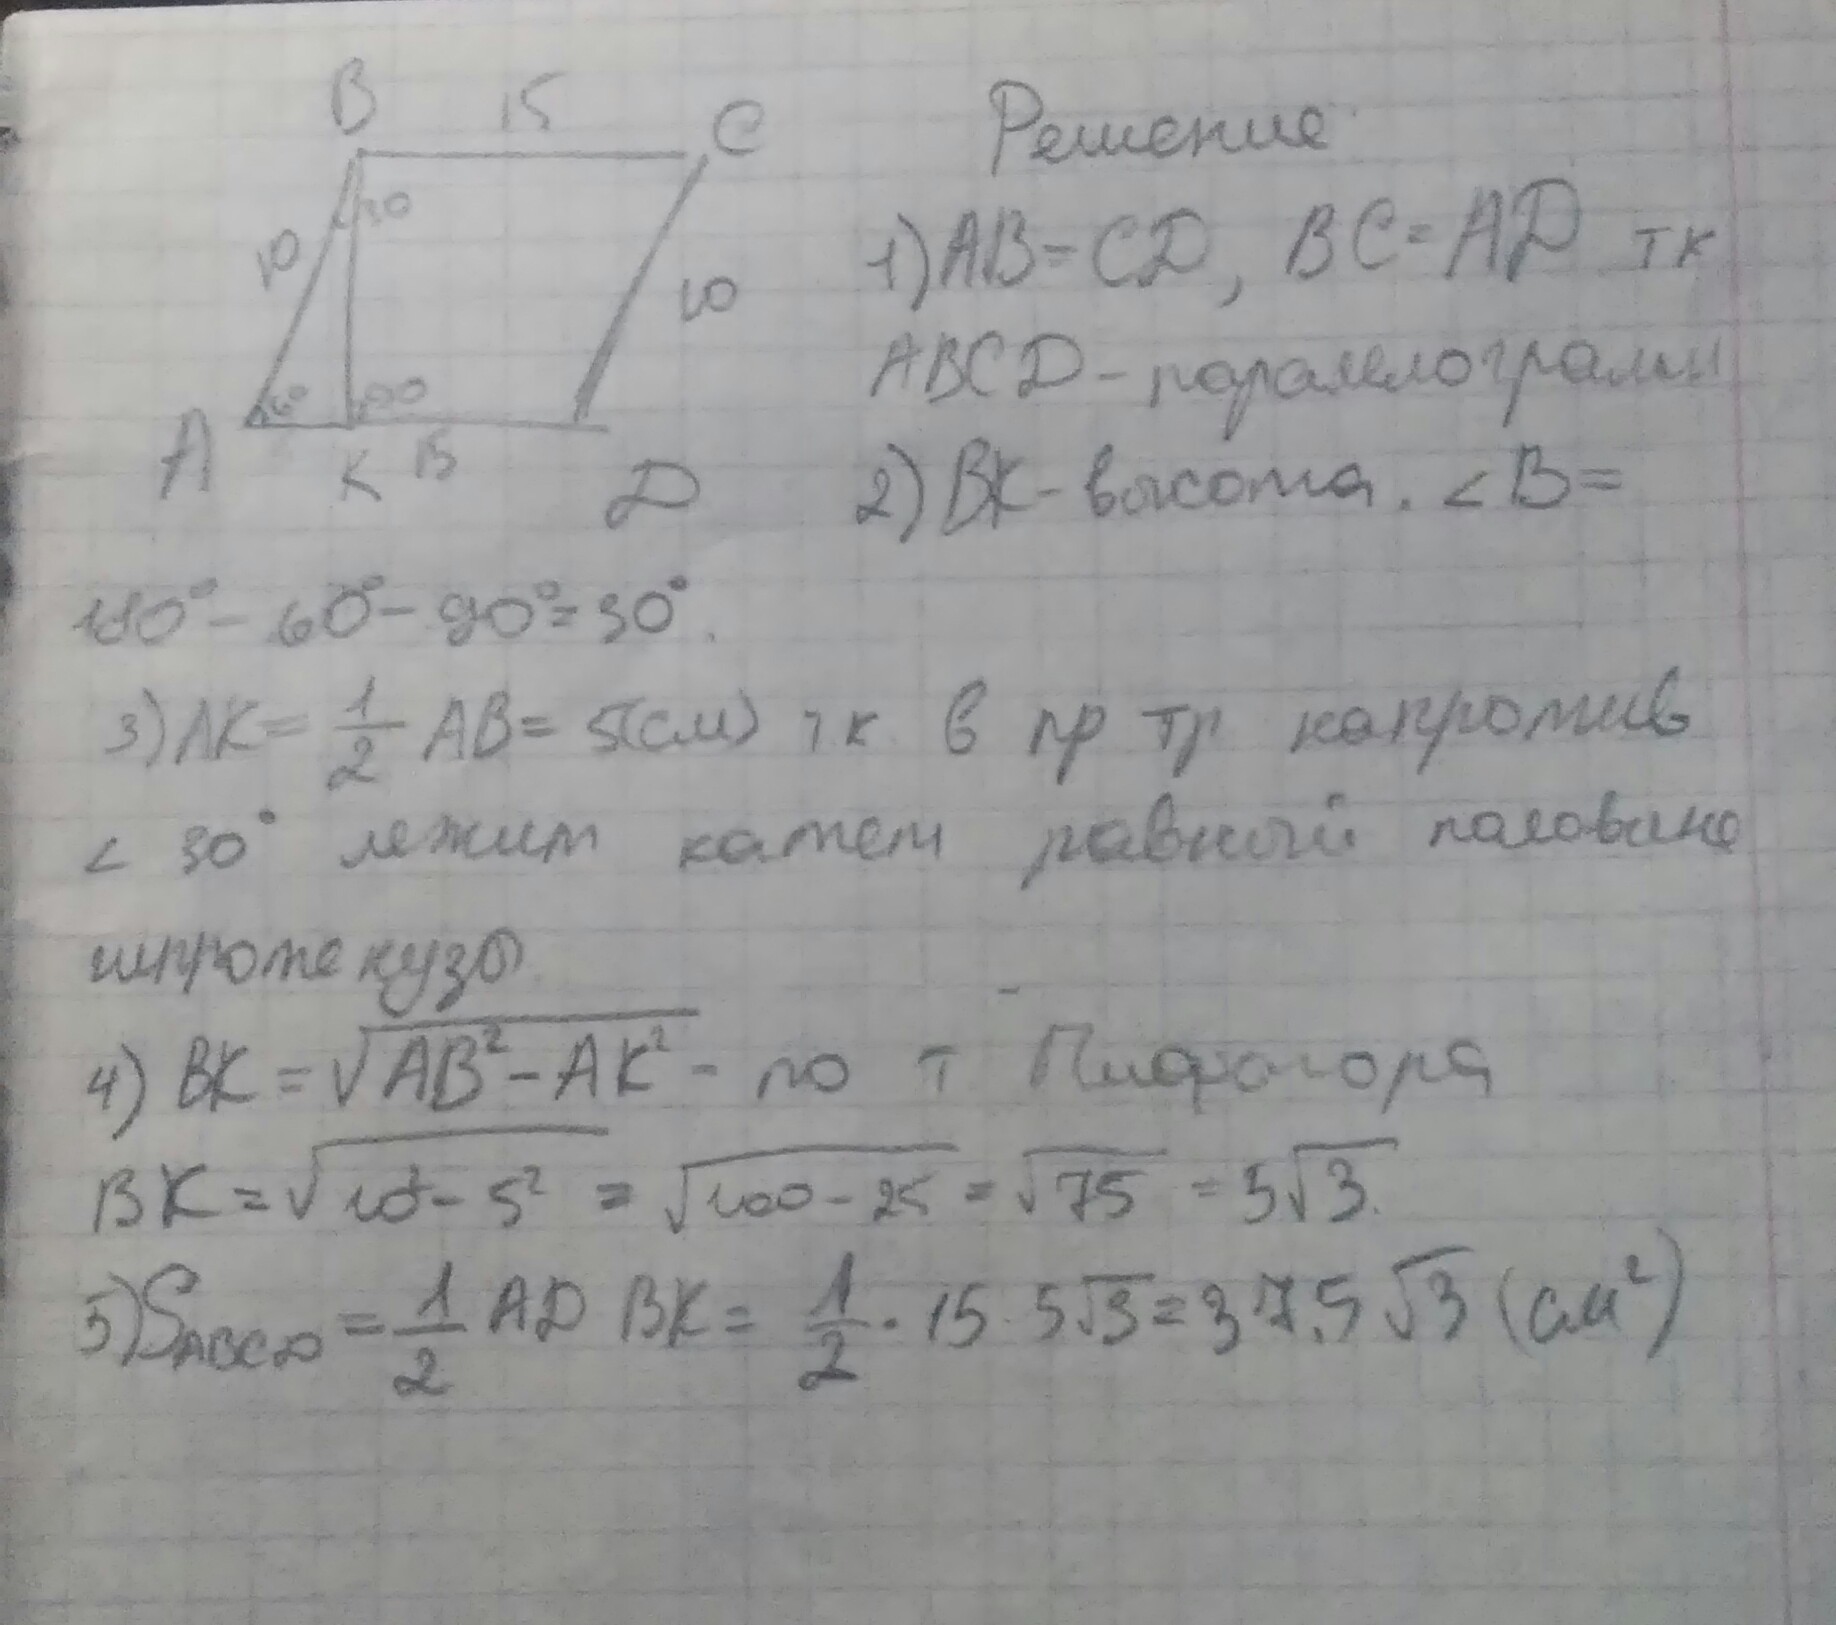 B 15 C
30
10
10
60 90
A K 15 D
Решение
1) AB = CD, BC = AD тк
ABCD - паралелограмм
2) BK - высота. ∠B =
180° - 60° - 90° = 30°.
3) AK = 1/2 AB = 5(см) тк в пр тр напротив
∠ 30° лежит катет равный половине
гипротекузы
4) BK = √(AB² - AK²) - по т Пифагора
BK = √(10² - 5²) = √(100 - 25) = √75 = 5√3.
5) S_ABCD = 1/2 AD BK = 1/2 · 15 · 5√3 = 37,5√3 (см²)